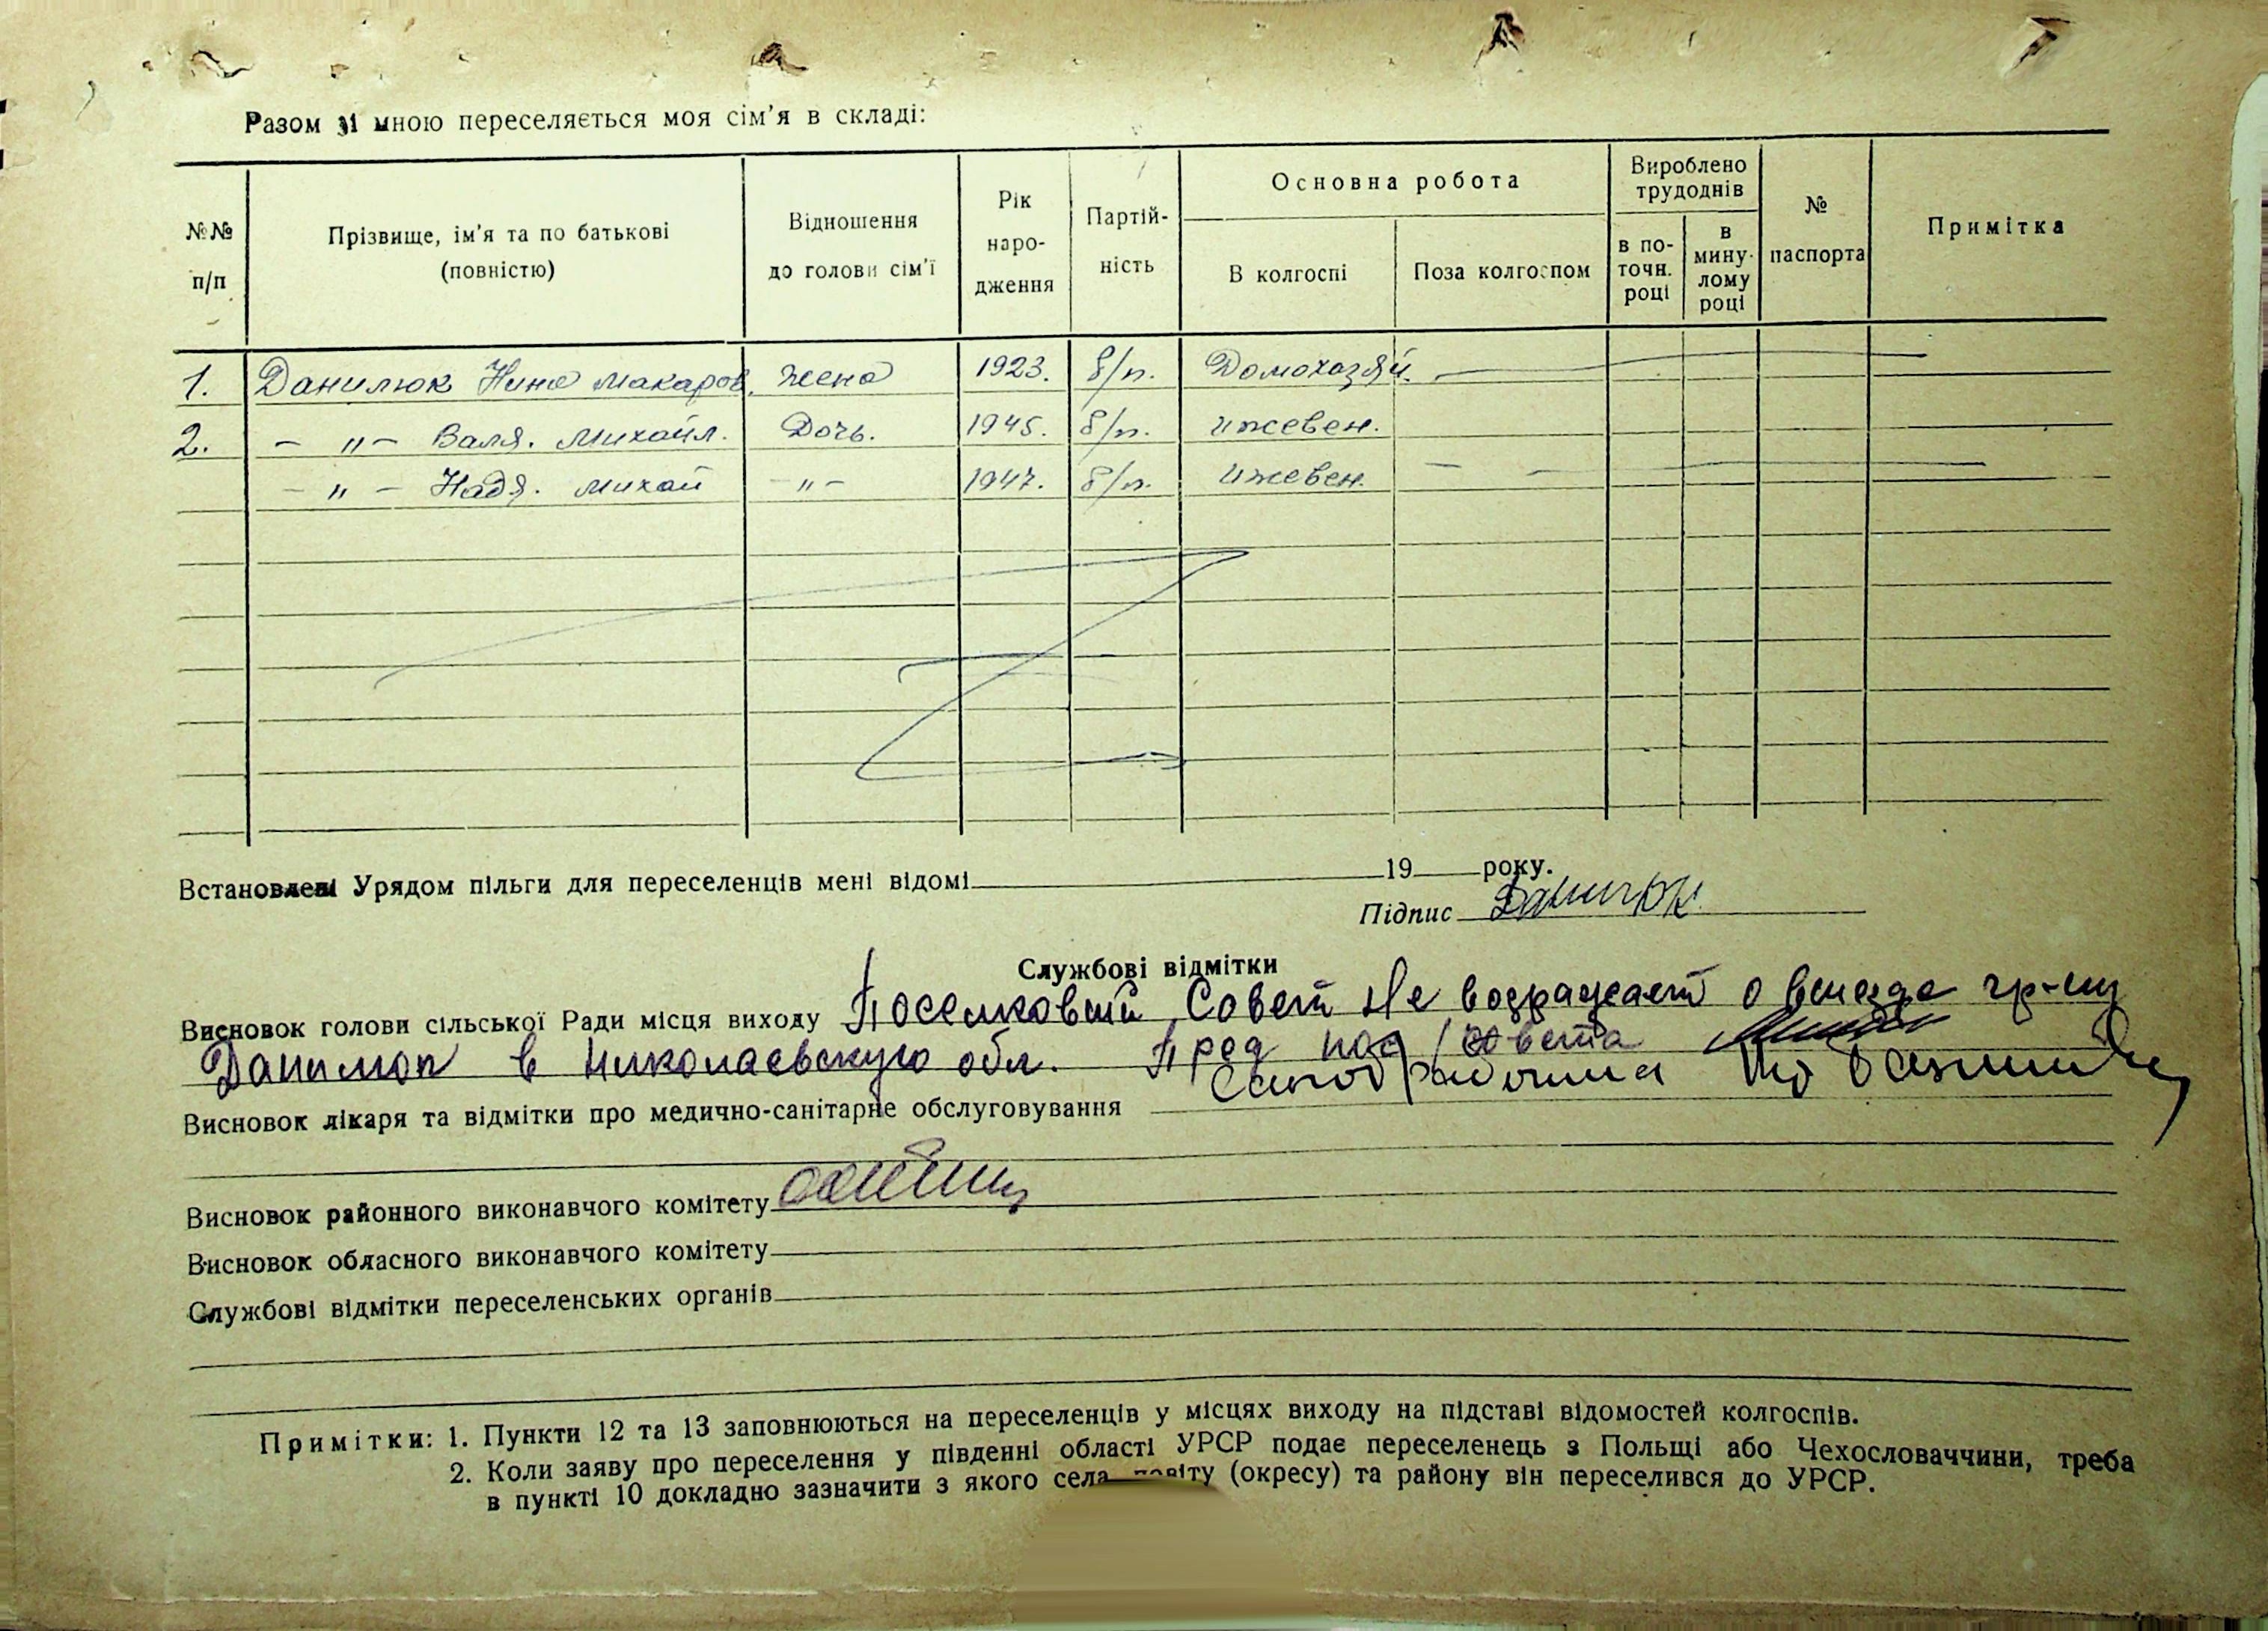 Разом зі мною переселяється моя сім'я в складі:
№№ п/п
Прізвище, ім'я та по батькові (повністю)
Відношення до голови сім'ї
Рік наро-дження
Партій-ність
Основна робота
В колгоспі
Поза колгоспом
Вироблено трудоднів
в по-точн. році
в мину-лому році
№ паспорта
Примітка
1. Данилюк Нина Макаров. жена 1923. б/п. Домохозяй. —
2. – „ – Валя. Михайл. Дочь. 1945. б/п. ижевен.
– „ – Надя. Михай – „ – 1947. б/п. ижевен. – –
Встановлені Урядом пільги для переселенців мені відомі 19 року.
Підпис Данилюк
Службові відмітки
Висновок голови сільської Ради місця виходу Поселковый Совет не возражает о выезде гр-ну
Данилюк в Николаевскую обл. Пред пос/совета
Висновок лікаря та відмітки про медично-санітарне обслуговування
Висновок районного виконавчого комітету
Висновок обласного виконавчого комітету
Службові відмітки переселенських органів
Примітки: 1. Пункти 12 та 13 заповнюються на переселенців у місцях виходу на підставі відомостей колгоспів.
2. Коли заяву про переселення у південні області УРСР подає переселенець з Польщі або Чехословаччини, треба
в пункті 10 докладно зазначити з якого села повіту (окресу) та району він переселився до УРСР.